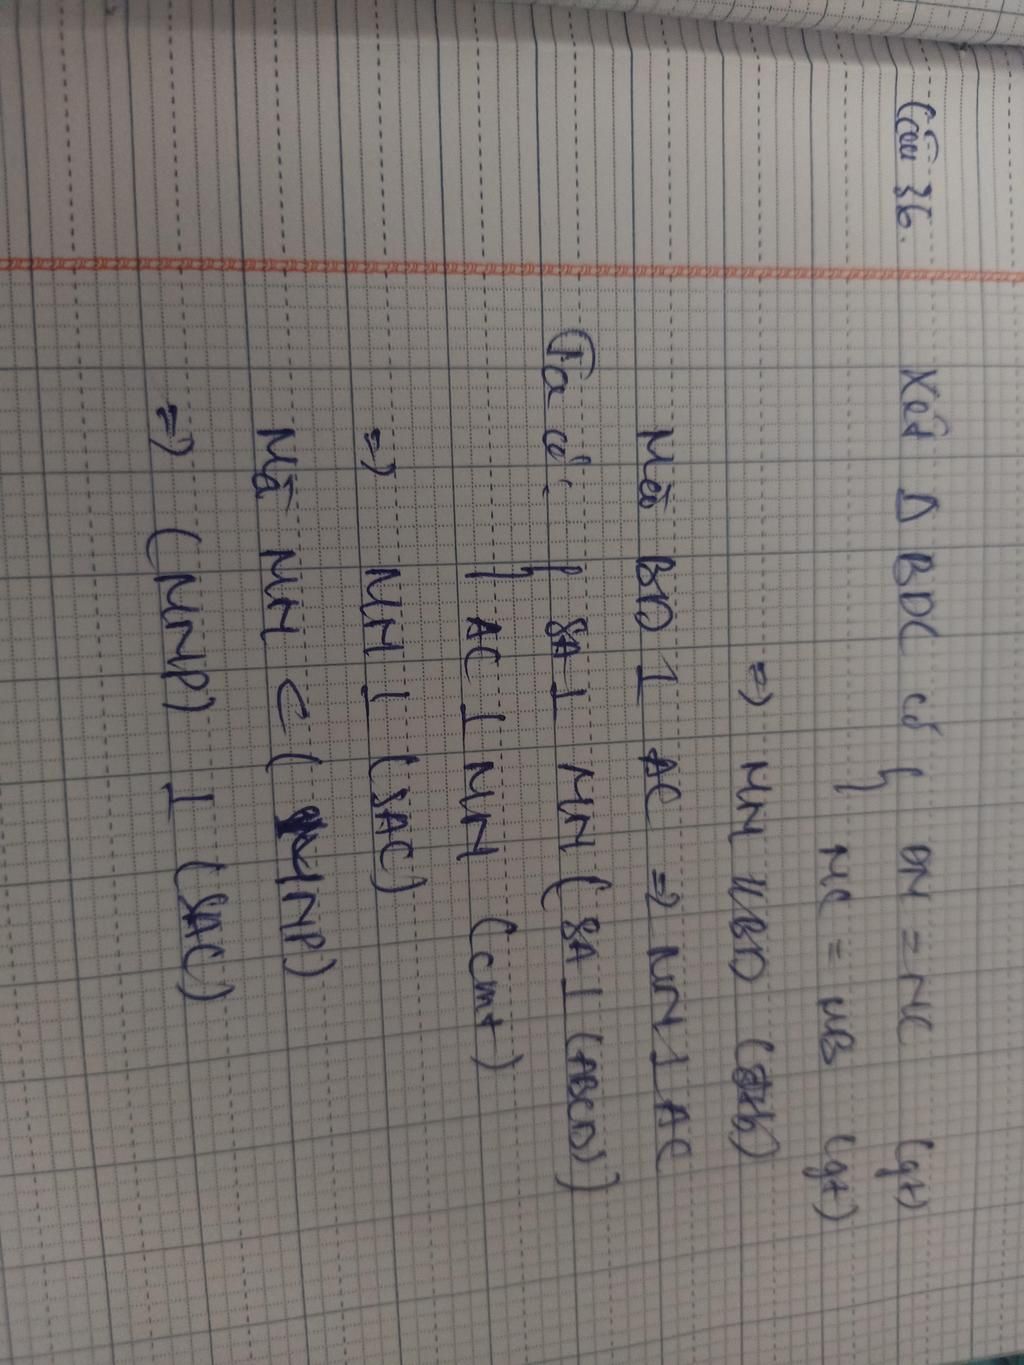 Câu 36.
Xét Δ BDC có { DN = NC (gt)
MC = MB (gt)
=> MN // BD (đtb)
Mà BD ⊥ AC => MN ⊥ AC
Ta có: { SA ⊥ MN (SA ⊥ (ABCD))
AC ⊥ MN (cmt)
=> MN ⊥ (SAC)
Mà MN ⊂ (MNP)
=> (MNP) ⊥ (SAC)